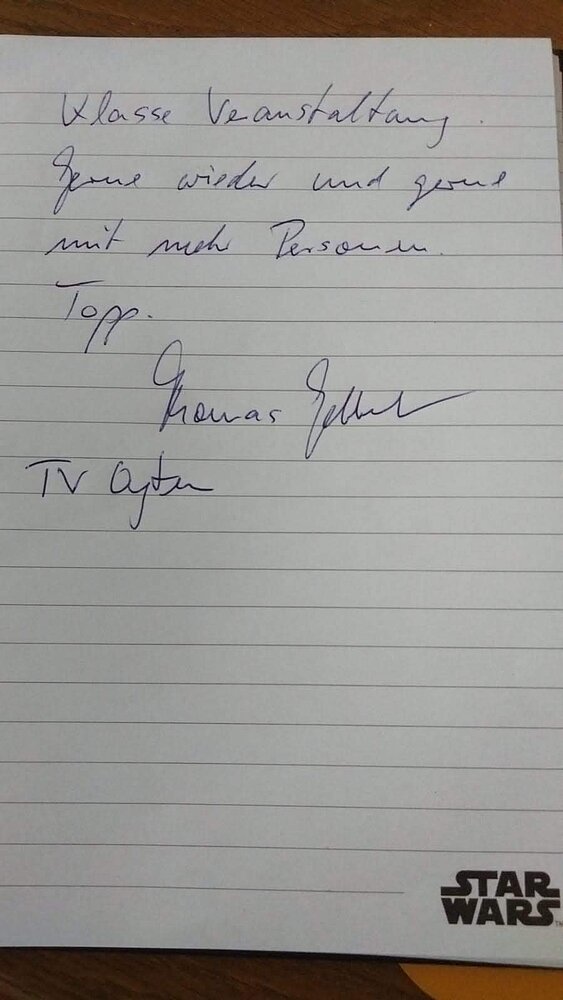 Klasse Veranstaltung.
Gerne wieder und gerne
mit mehr Personen.
Topp.
Thomas
TV Oyten
STAR
WARS